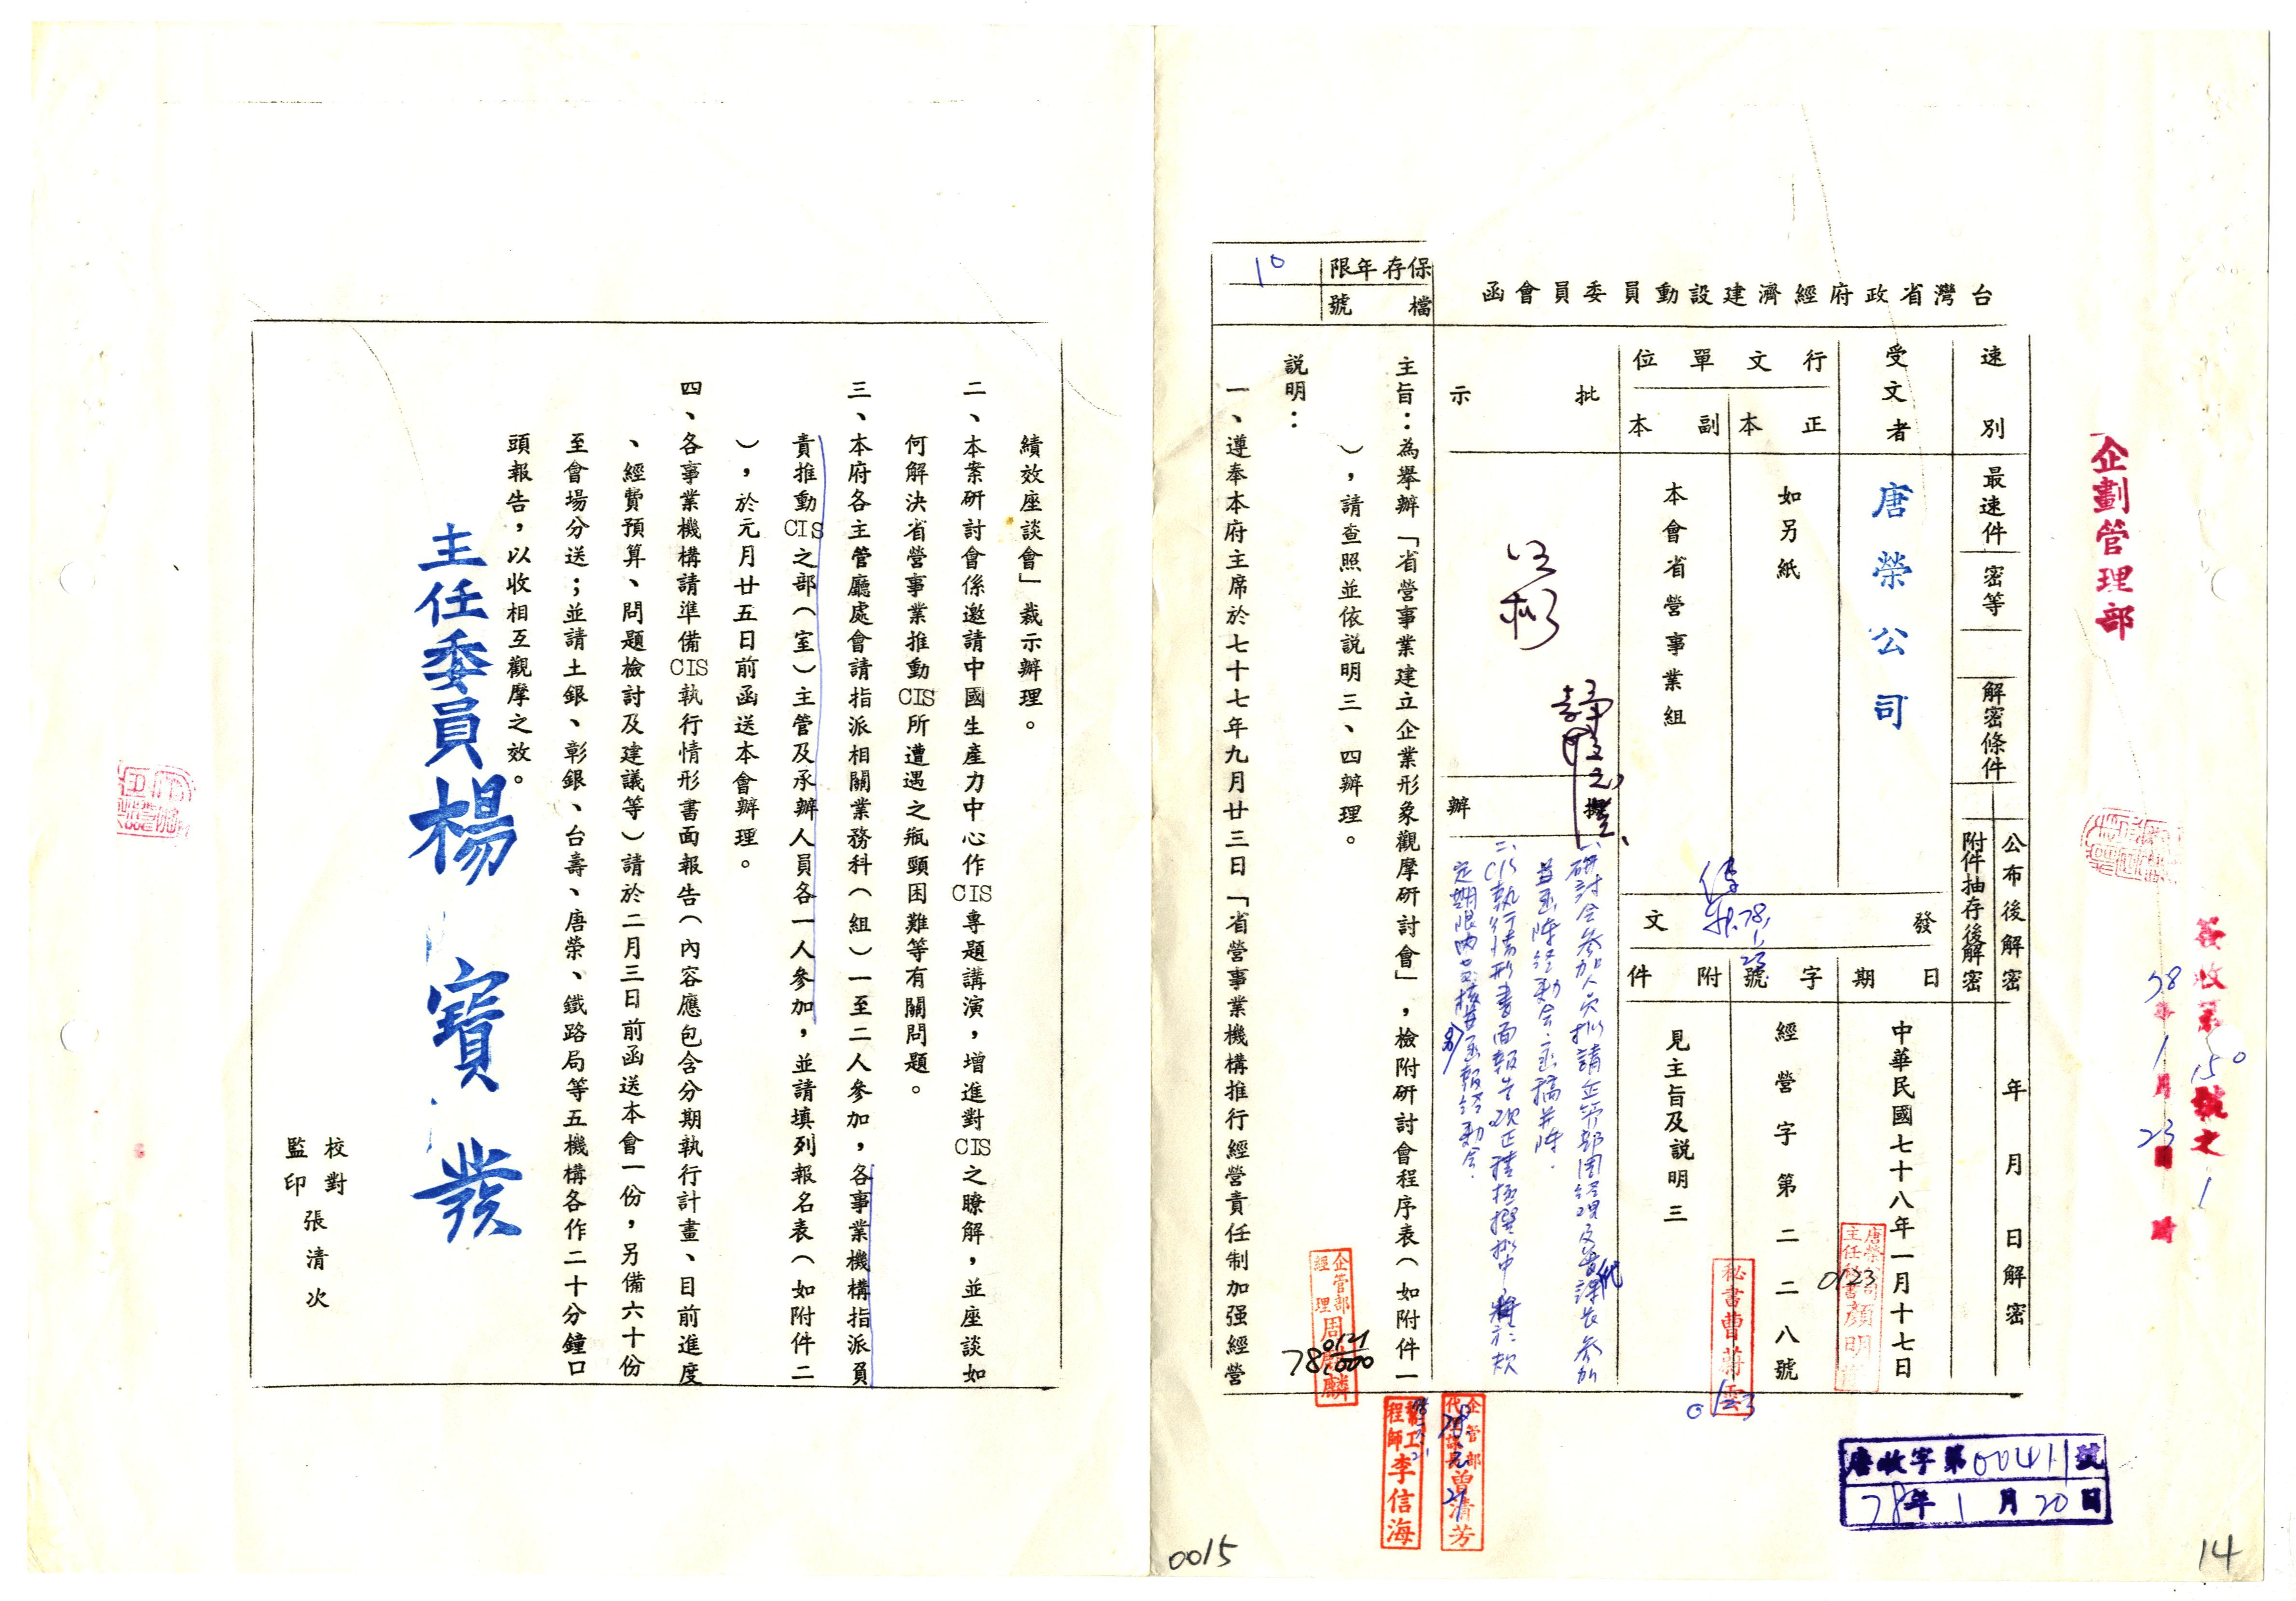 台灣省政府經濟建設動員委員會函
保存年限
10
檔號
速別
最速件
密等
解密條件
公布後解密
附件抽存後解密
年月日解密
受文者
唐榮公司
行文單位
正本
如另紙
副本
本會省營事業組
發文
日期
中華民國七十八年一月十七日
字號
經營字第二二八號
附件
見主旨及說明三
批示
擬辦
一、研討會參加人員擬請企管部周經理及曾代課長參加
並函陳經動會.函稿并陳.
二、CIS執行情形書面報告現正積極撰擬中,將於
定期限內
函報經動會.
主旨：為舉辦「省營事業建立企業形象觀摩研討會」，檢附研討會程序表（如附件一
），請查照並依說明三、四辦理。
說明：
一、遵奉本府主席於七十七年九月廿三日「省營事業機構推行經營責任制加强經營
績效座談會」裁示辦理。
二、本案研討會係邀請中國生產力中心作CIS專題講演，增進對CIS之瞭解，並座談如
何解決省營事業推動CIS所遭遇之瓶頸困難等有關問題。
三、本府各主管廳處會請指派相關業務科（組）一至二人參加，各事業機構指派員
責推動CIS之部（室）主管及承辦人員各一人參加，並請填列報名表（如附件二
），於元月廿五日前函送本會辦理。
四、各事業機構請準備CIS執行情形書面報告（內容應包含分期執行計畫、目前進度
、經費預算、問題檢討及建議等）請於二月三日前函送本會一份，另備六十份
至會場分送；並請土銀、彰銀、台壽、唐榮、鐵路局等五機構各作二十分鐘口
頭報告，以收相互觀摩之效。
主任委員楊寶發
校對
監印
張清次
企劃管理部
簽收第150號之1
78年1月23日時
唐榮公司
主任秘書顏明
0123
秘書曹蔚雲
0123
企管部
經理周麟
企管部
代課長曾清芳
程師李信海
唐收字第00411號
78年1月20日
0015
14